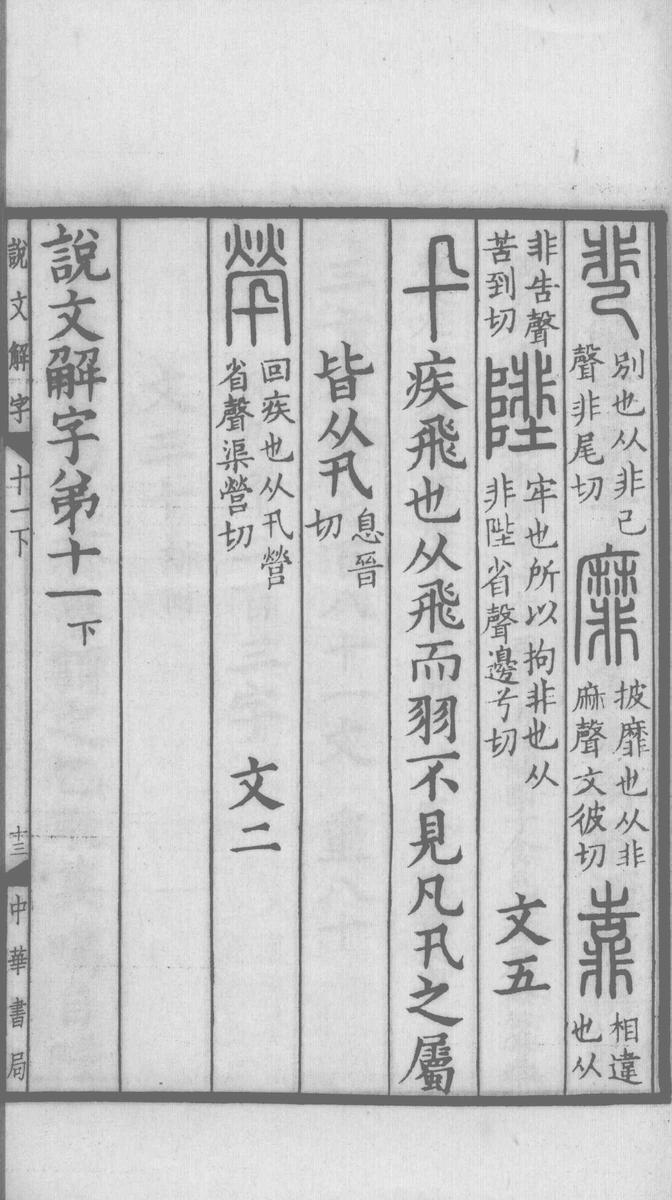 別也从非己聲非尾切 靡 披靡也从非麻聲文彼切 靠 相違也从
非告聲苦到切 牢也所以拘非也从非陛省聲邊兮切 文五
卂 疾飛也从飛而羽不見凡卂之屬
皆从卂 息晉切
煢 回疾也从卂營省聲渠營切 文二
說文解字弟十一下
說文解字 十一下 十三 中華書局